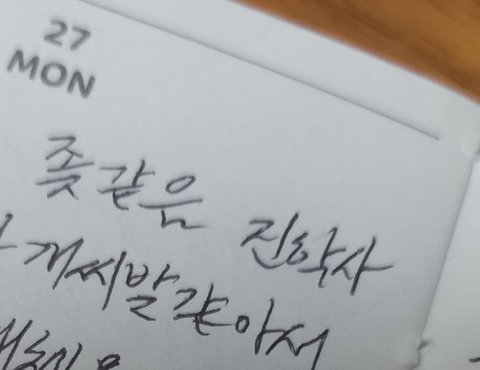 27
MON
좆같은 진학사
개씨발 같아서